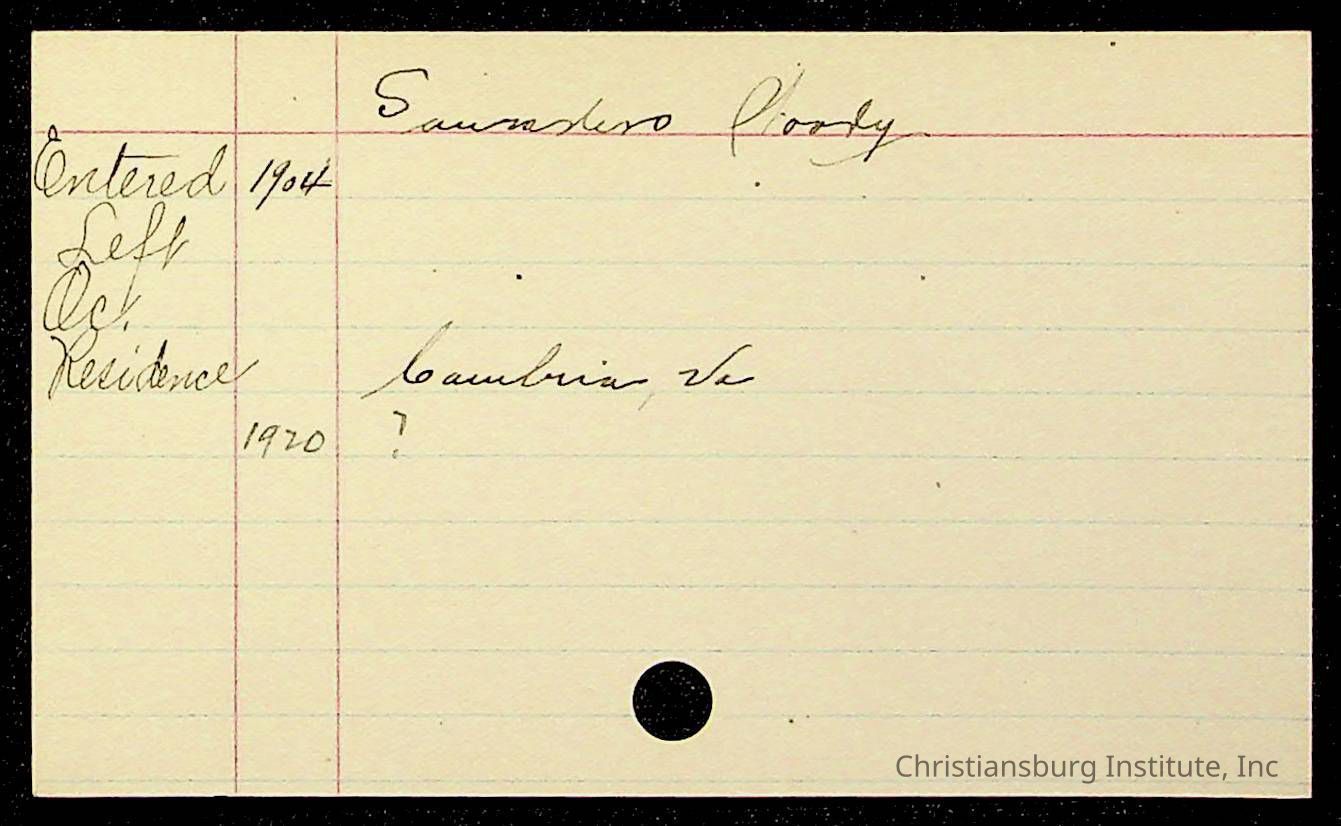 Saunders
Entered 1904
Left
Oc.
Residence Cambria, Va
1920 ?
Christiansburg Institute, Inc